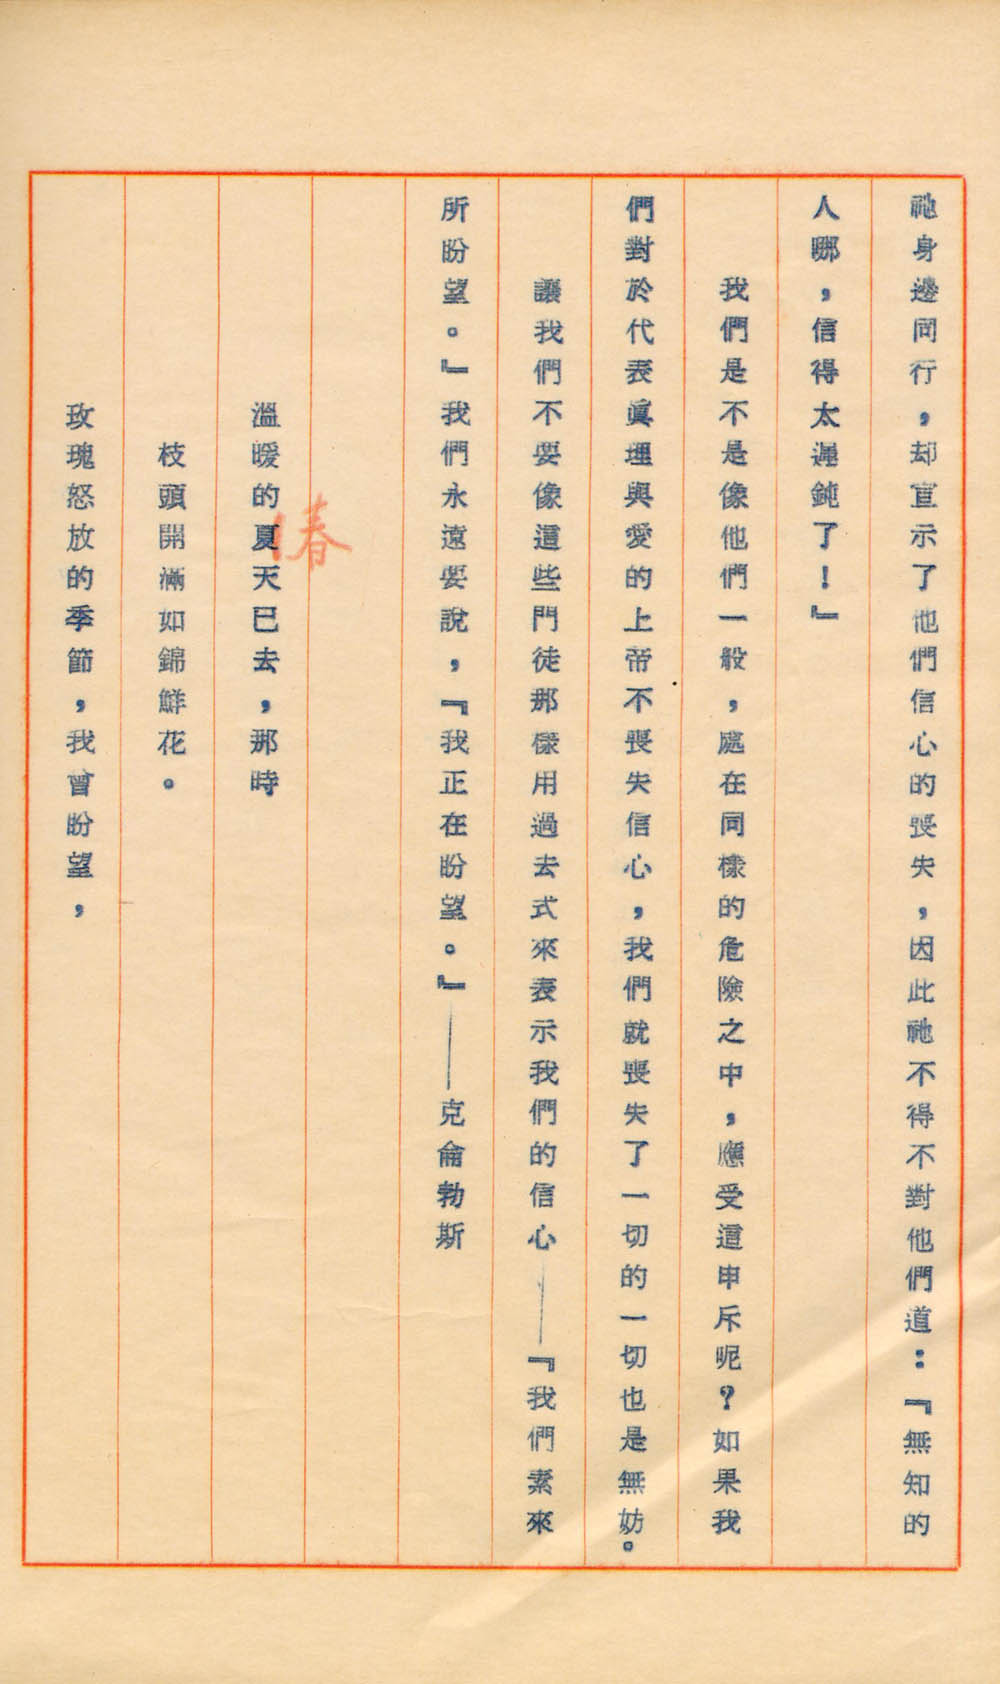 祂身邊同行，却宣示了他們信心的喪失，因此祂不得不對他們道：『無知的
人哪，信得太遲鈍了！』
我們是不是像他們一般，處在同樣的危險之中，應受這申斥呢？如果我
們對於代表眞理與愛的上帝不喪失信心，我們就喪失了一切的一切也是無妨。
讓我們不要像這些門徒那樣用過去式來表示我們的信心——『我們素來
所盼望。』我們永遠要說，『我正在盼望。』——克侖勃斯
溫暖的夏天已去，那時
春
枝頭開滿如錦鮮花。
玫瑰怒放的季節，我曾盼望，